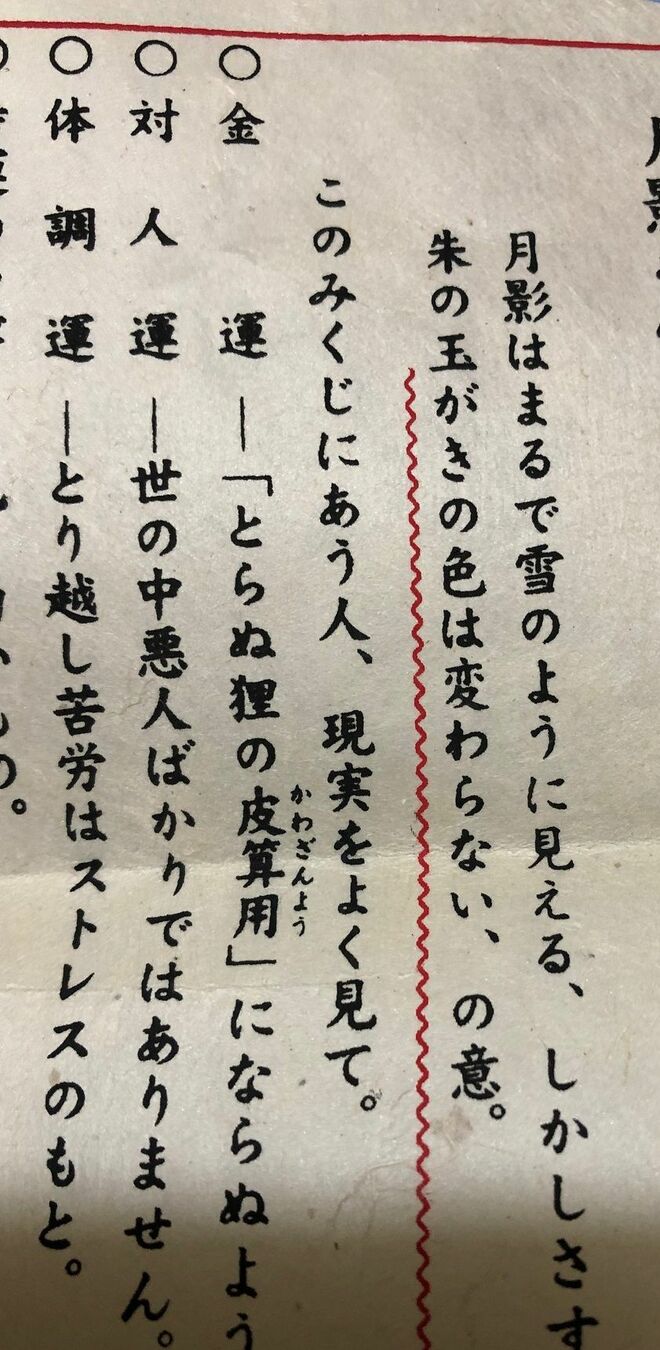 月影
月影はまるで雪のように見える、しかしさす
朱の玉がきの色は変わらない、の意。
このみくじにあう人、現実をよく見て。
○金運―「とらぬ狸の皮算用」にならぬよう
かわざんよう
○対人運―世の中悪人ばかりではありません。
○体調運―とり越し苦労はストレスのもと。